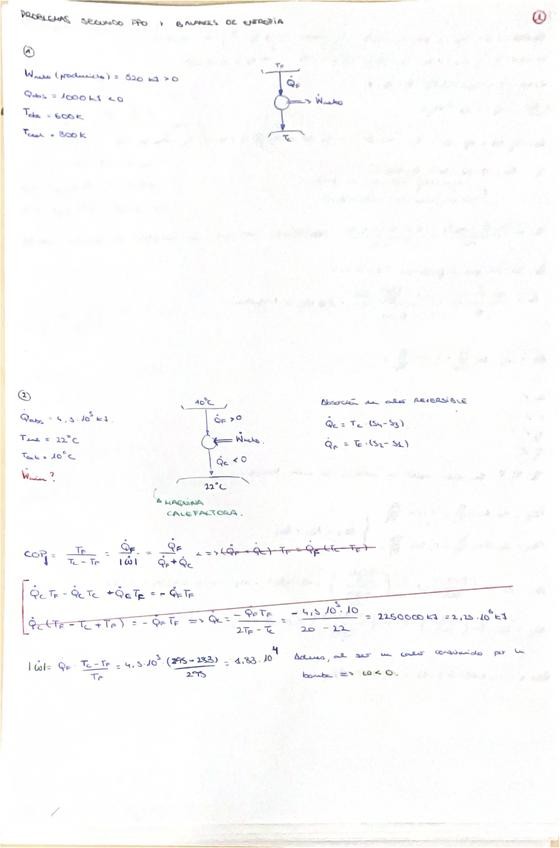 PROBLEMAS SEGUNDO PPO Y BALANCES DE ENERGÍA
1
①
Wneto (producido) = 520 kJ > 0
Qabs = 1000 kJ < 0
Tabs = 600 K
Tced = 300 K
TF
Q̇F
Ẇneto
TC
②
Qabs = 4,5·10⁵ kJ.
Tced = 22°C
Tabs = 10°C
Ẇmin?
10°C
Q̇F > 0
Ẇneto.
Q̇C < 0
22°C
MAQUINA
CALEFACTORA.
Absorción de calor REVERSIBLE
Q̇C = TC·(S4-S3)
Q̇F = TF·(S2-S1)
COPf = TF / (TC - TF) = Q̇F / |Ẇ| = Q̇F / (Q̇F + Q̇C) <=> (Q̇F + Q̇C) TF = Q̇F (TC - TF)
Q̇C TF - Q̇C TC + Q̇C TF = - Q̇F TF
Q̇C (TF - TC + TF) = - Q̇F TF => Q̇C = - Q̇F TF / (2TF - TC) = - 4,5·10⁵·10 / (20 - 22) = 2250000 kJ = 2,25·10⁶ kJ
|Ẇ| = Q̇F · (TC - TF) / TF = 4,5·10⁵ (295 - 283) / 295 = 1.83·10⁴ Además, al ser un calor consumido por la
bomba => W < 0.